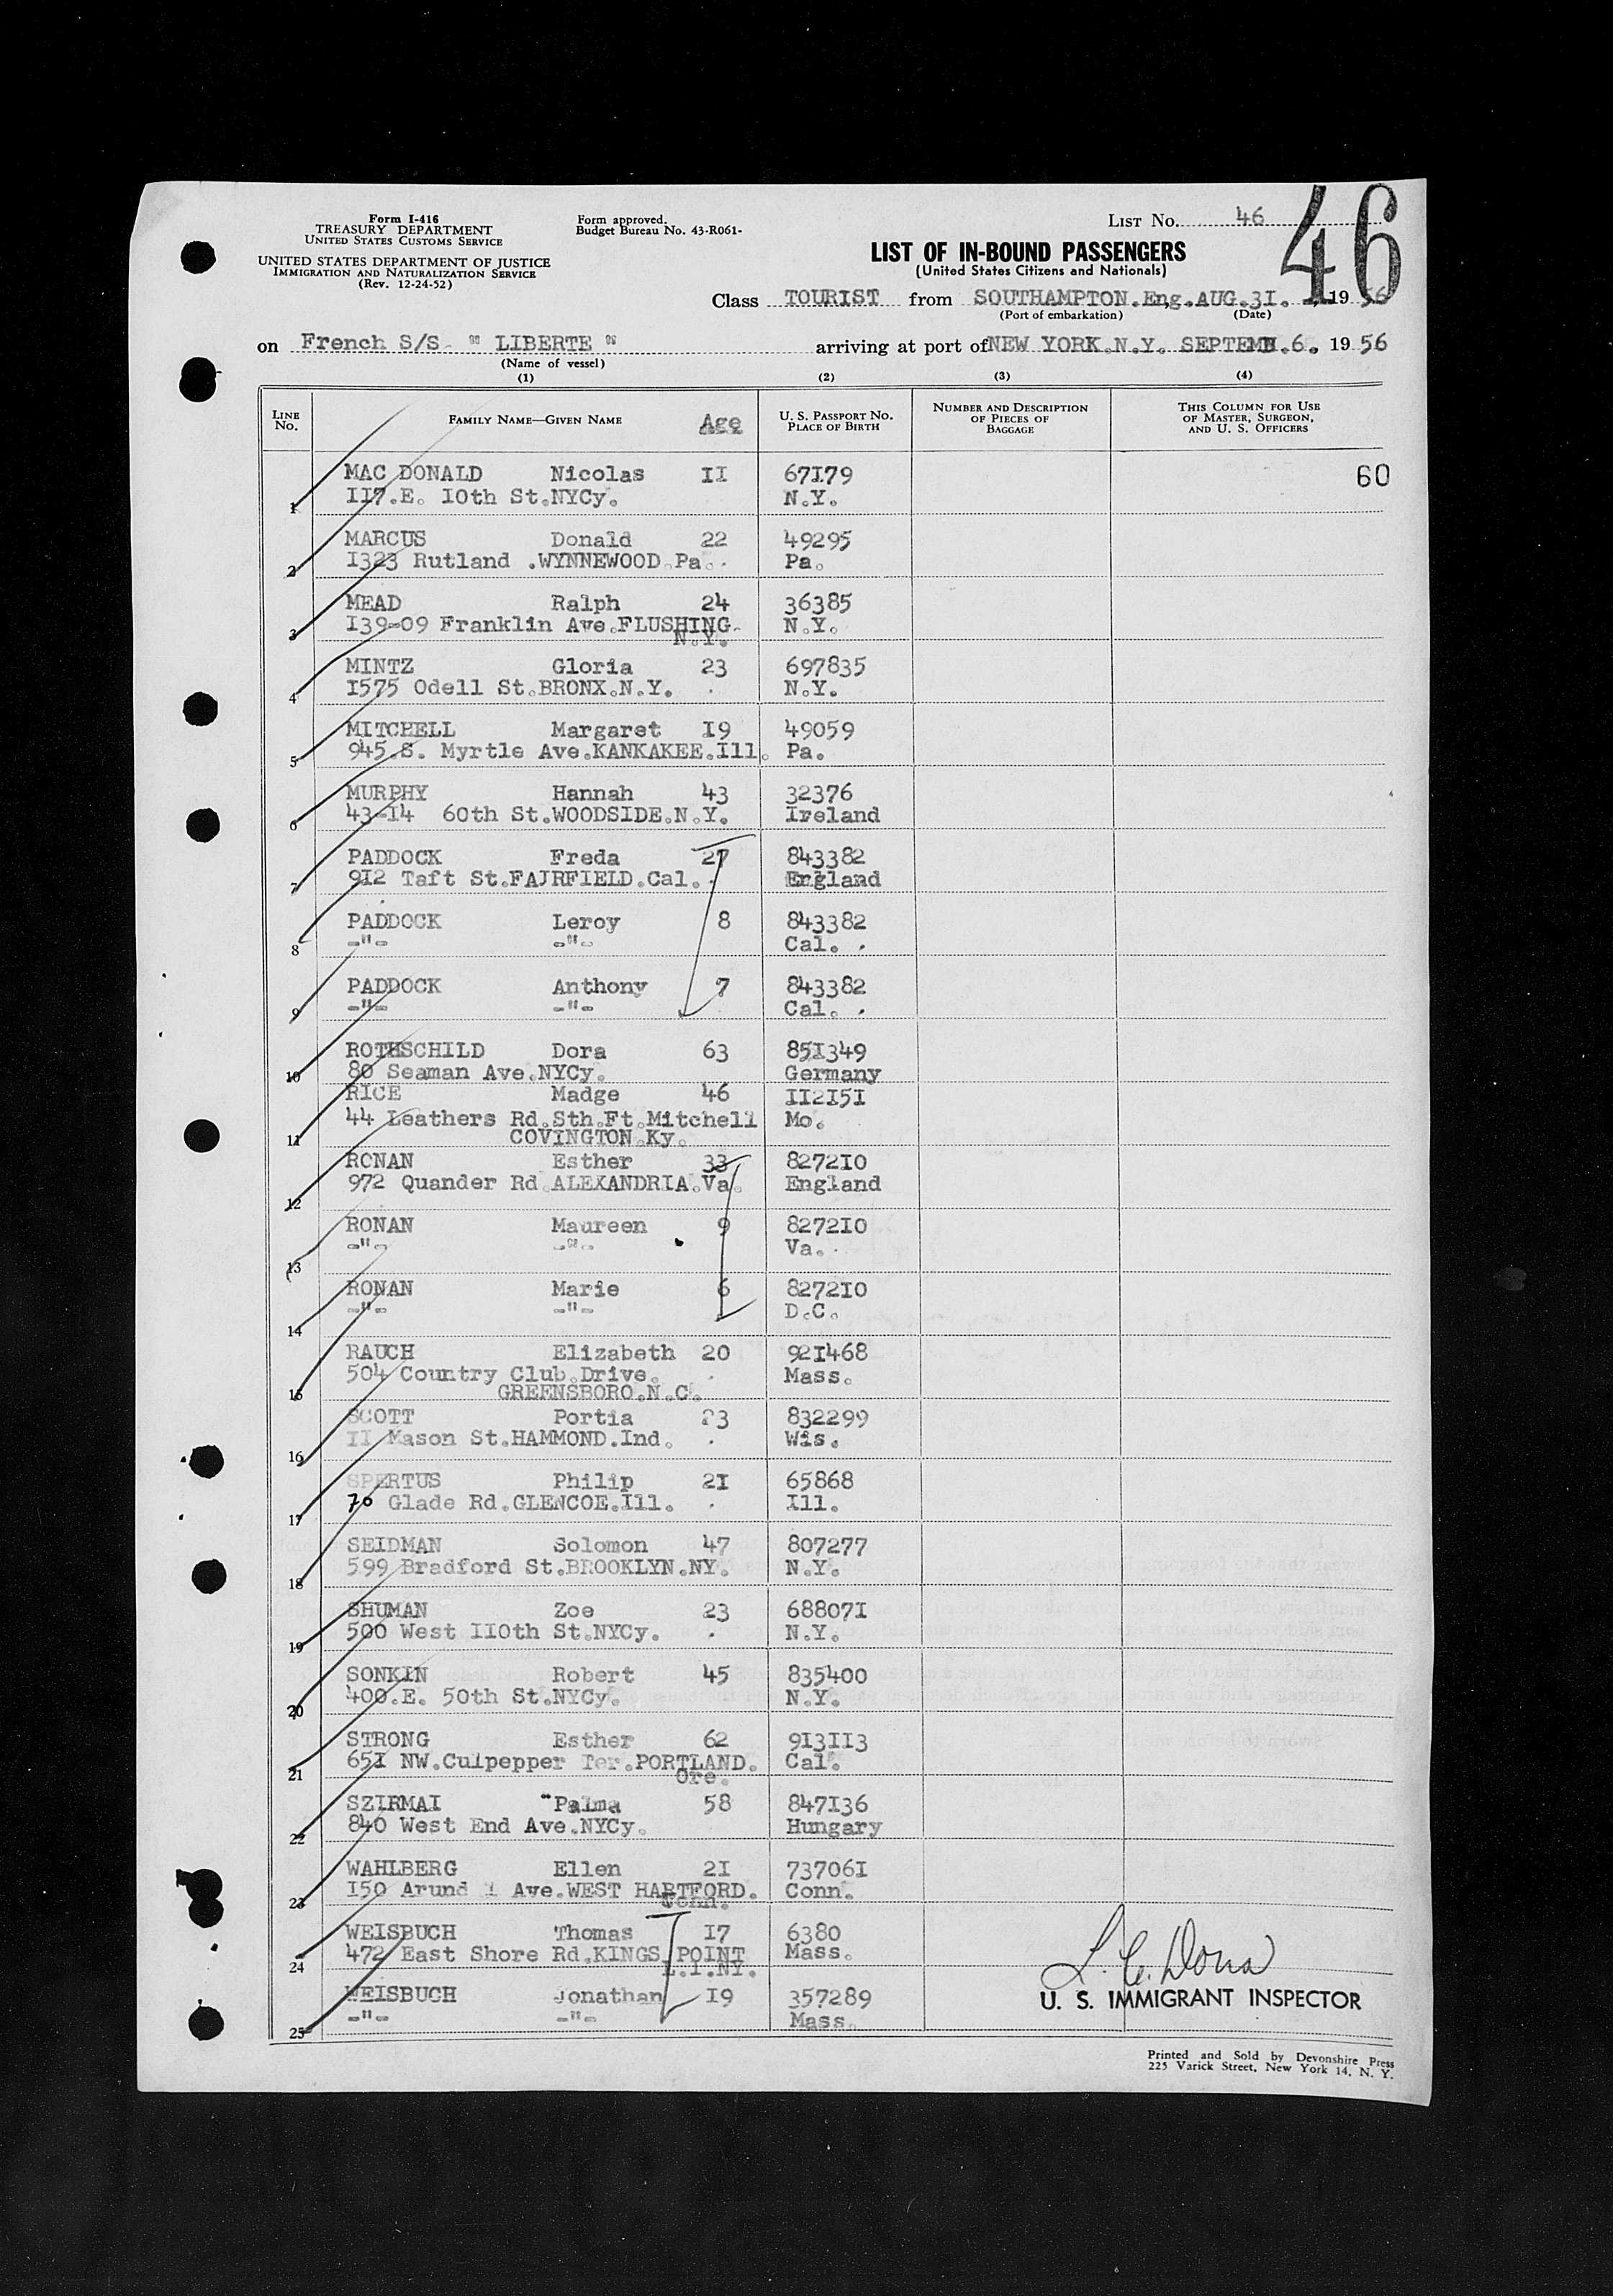 Form I-416
TREASURY DEPARTMENT
UNITED STATES CUSTOMS SERVICE
UNITED STATES DEPARTMENT OF JUSTICE
IMMIGRATION AND NATURALIZATION SERVICE
(Rev. 12-24-52)
Form approved.
Budget Bureau No. 43-R061-
LIST No. 46
46
LIST OF IN-BOUND PASSENGERS
(United States Citizens and Nationals)
Class TOURIST from SOUTHAMPTON.Eng.AUG.3I. , 19 56
(Port of embarkation) (Date)
on French S/S " LIBERTE " arriving at port of NEW YORK.N.Y. SEPTEMB.6. 19 56
(Name of vessel)
(1) (2) (3) (4)
LINE No. FAMILY NAME—GIVEN NAME Age U. S. PASSPORT No. PLACE OF BIRTH NUMBER AND DESCRIPTION OF PIECES OF BAGGAGE THIS COLUMN FOR USE OF MASTER, SURGEON, AND U. S. OFFICERS
MAC DONALD Nicolas II 67I79 60
1 II7.E. I0th St.NYCy. N.Y.
MARCUS Donald 22 49295
2 I323 Rutland .WYNNEWOOD.Pa. Pa.
MEAD Ralph 24 36385
3 I39-09 Franklin Ave.FLUSHING. N.Y.
N.Y.
MINTZ Gloria 23 697835
4 I575 Odell St.BRONX.N.Y. N.Y.
MITCHELL Margaret I9 49059
5 945.S. Myrtle Ave.KANKAKEE.Ill. Pa.
MURPHY Hannah 43 32376
6 43-I4 60th St.WOODSIDE.N.Y. Ireland
PADDOCK Freda 27 843382
7 9I2 Taft St.FAIRFIELD.Cal. England
PADDOCK Leroy 8 843382
8 -"- -"- Cal.
PADDOCK Anthony 7 843382
9 -"- -"- Cal.
ROTHSCHILD Dora 63 85I349
10 80 Seaman Ave.NYCy. Germany
RICE Madge 46 II2I5I
44 Leathers Rd.Sth.Ft.Mitchell Mo.
11 COVINGTON.Ky.
RONAN Esther 33 8272I0
12 972 Quander Rd.ALEXANDRIA.Va. England
RONAN Maureen 9 8272I0
13 -"- -"- Va.
RONAN Marie 6 8272I0
14 -"- -"- D.C.
RAUCH Elizabeth 20 92I468
504 Country Club.Drive. Mass.
15 GREENSBORO.N.C.
SCOTT Portia 23 832299
16 II Mason St.HAMMOND.Ind. Wis.
SPERTUS Philip 2I 65868
17 70 Glade Rd.GLENCOE.Ill. Ill.
SEIDMAN Solomon 47 807277
18 599 Bradford St.BROOKLYN.NY. N.Y.
SHUMAN Zoe 23 68807I
19 500 West II0th St.NYCy. N.Y.
SONKIN Robert 45 835400
20 400.E. 50th St.NYCy. N.Y.
STRONG Esther 62 9I3II3
21 65I NW.Culpepper Ter.PORTLAND. Cal.
Ore.
SZIRMAI Palma 58 847I36
22 840 West End Ave.NYCy. Hungary
WAHLBERG Ellen 2I 73706I
23 I50 Ave.WEST HARTFORD. Conn.
Conn.
WEISBUCH Thomas I7 6380
24 472 East Shore Rd.KINGS POINT Mass.
L.I.NY.
WEISBUCH Jonathan I9 357289
25 -"- -"- Mass.
L. C. Dona
U. S. IMMIGRANT INSPECTOR
Printed and Sold by Devonshire Press
225 Varick Street, New York 14, N. Y.